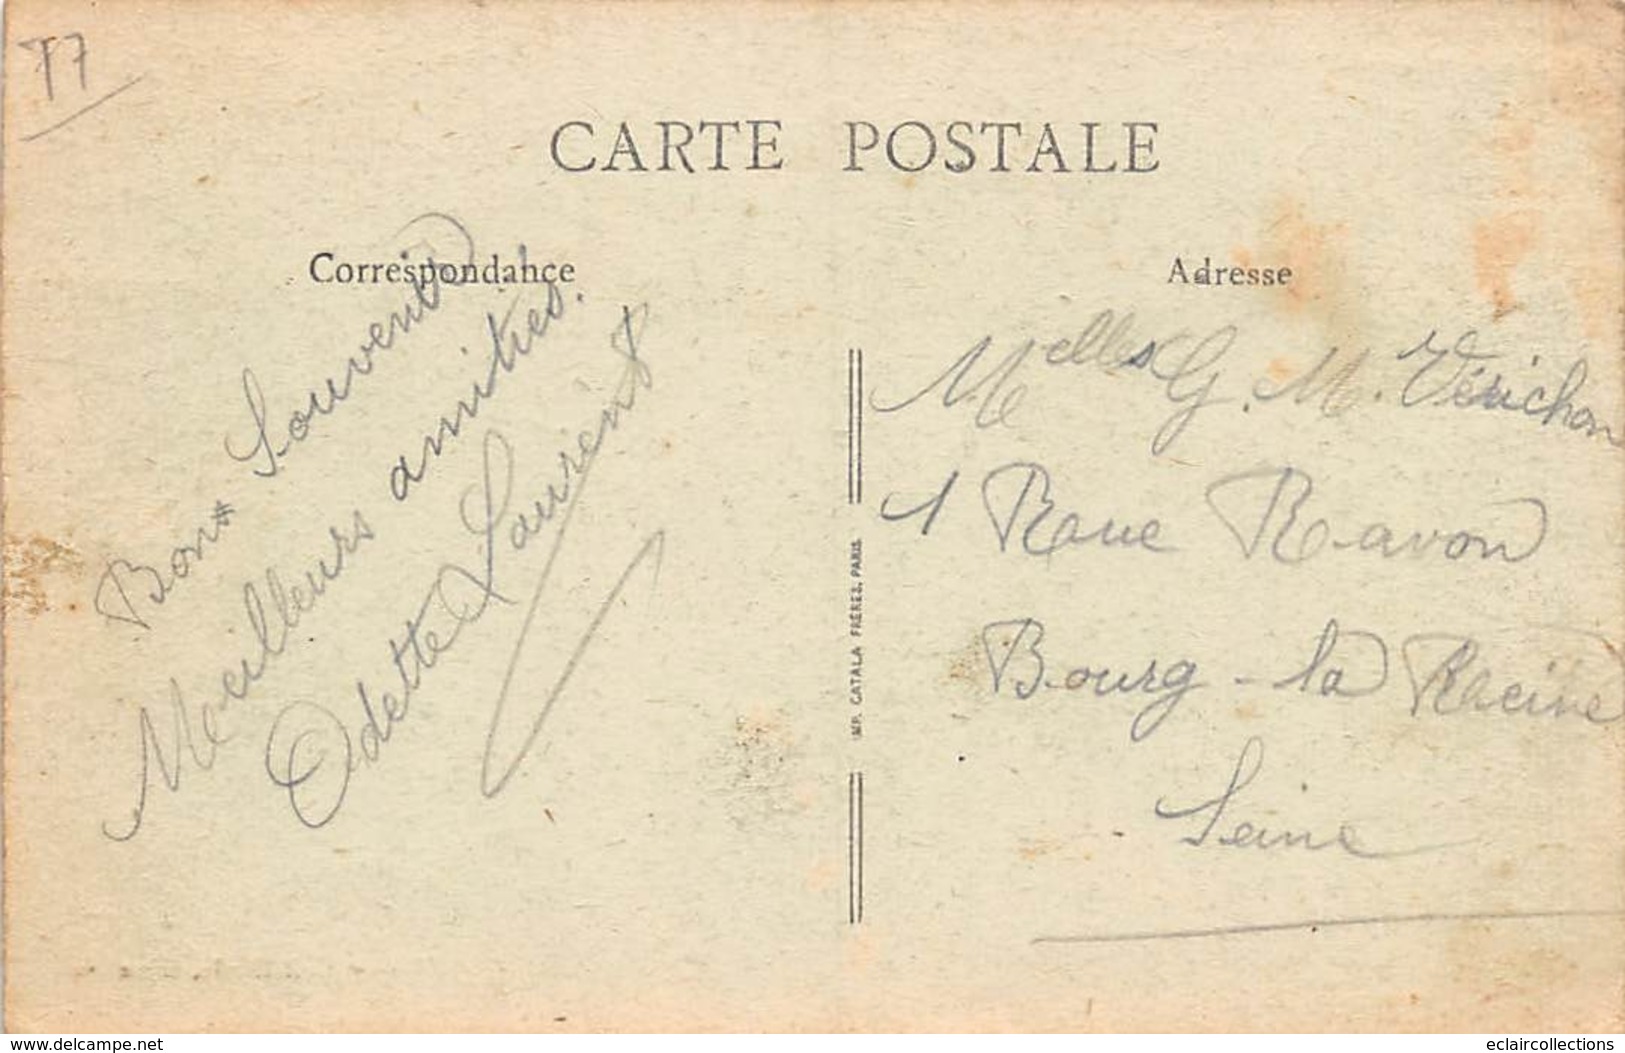 T7
CARTE POSTALE
Correspondance
Bons Souvenirs
Meilleurs amitiés.
Odette Laurent
Adresse
Melles G. M. Vérichon
1 Rue Ravon
Bourg-la Reine
Seine
IMP. CATALA FRÈRES, PARIS
www.delcampe.net
eclaircollections